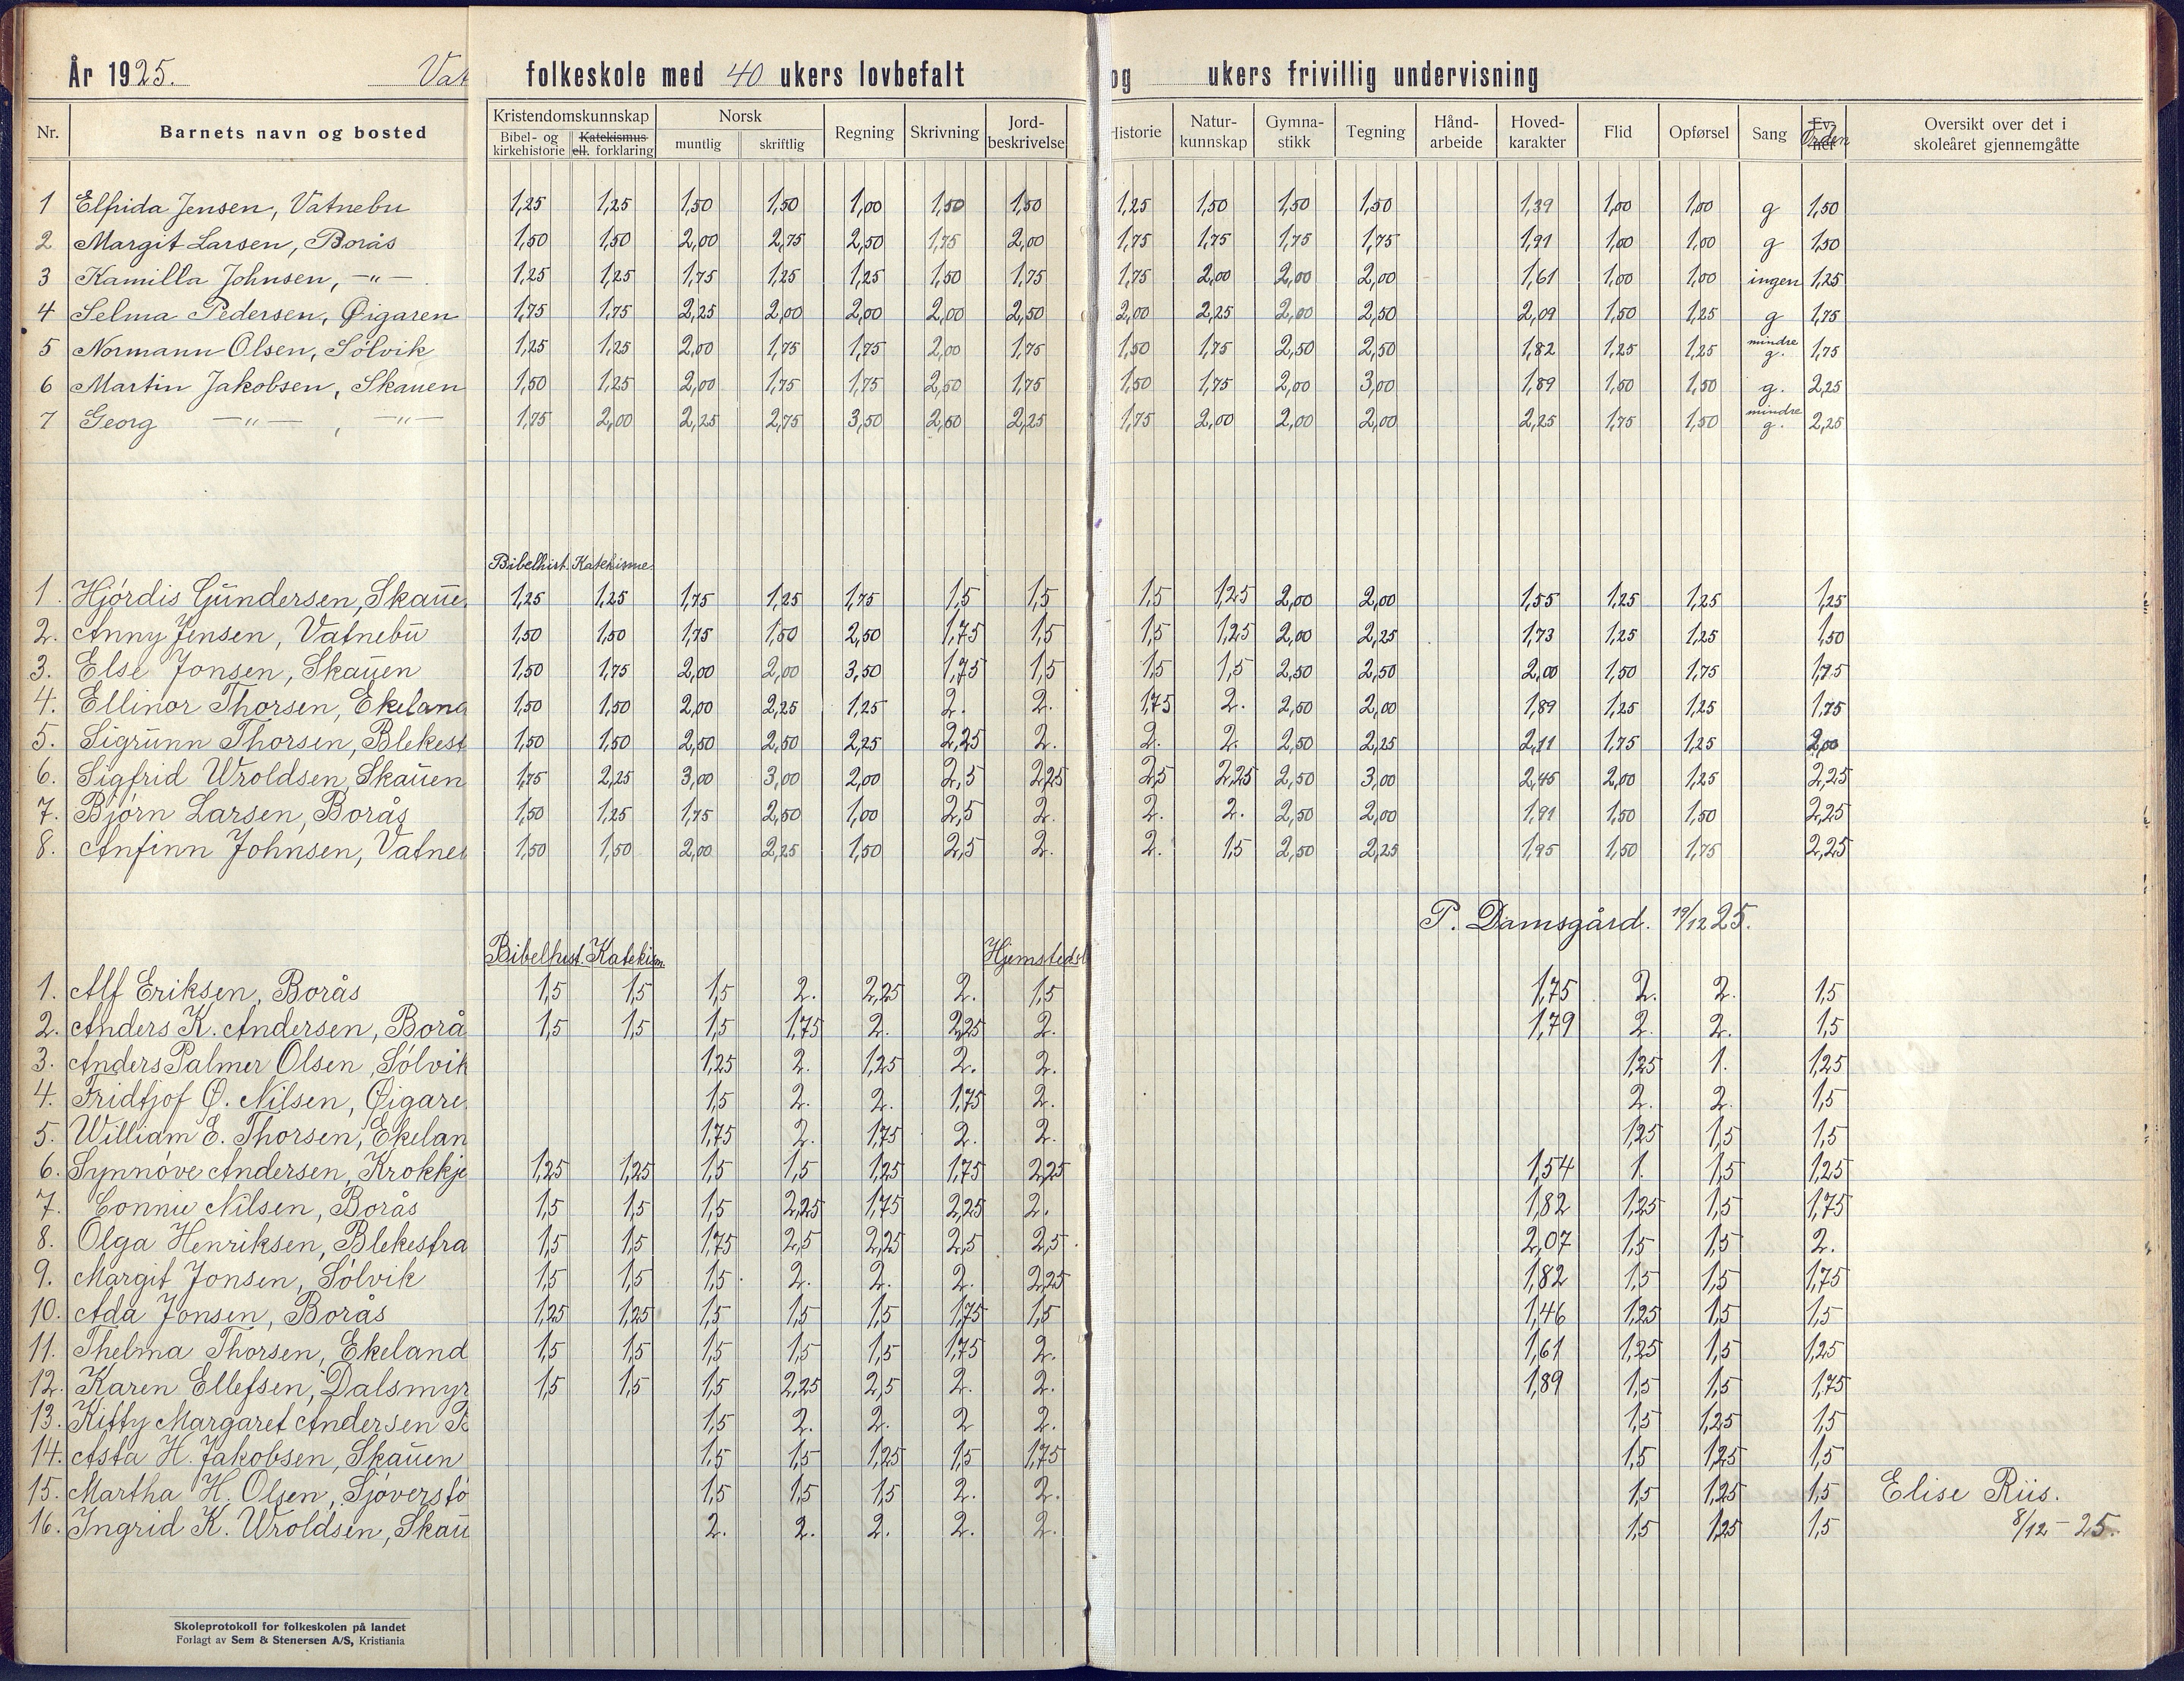 År 1925. Vat folkeskole med 40 ukers lovbefalt og ukers frivillig undervisning
Nr. Barnets navn og bosted Kristendomskunnskap Norsk Regning Skrivning Jord-beskrivelse Historie Natur-kunnskap Gymna-stikk Tegning Hånd-arbeide Hoved-karakter Flid Opførsel Sang Orden Oversikt over det i skoleåret gjennemgåtte
Bibel- og kirkehistorie Katekismus ell. forklaring muntlig skriftlig
1 Elfrida Jensen, Vatnebu 1,25 1,25 1,50 1,50 1,00 1,50 1,50 1,25 1,50 1,50 1,50 1,39 1,00 1,00 g 1,50
2 Margit Larsen, Borås 1,50 1,50 2,00 2,75 2,50 1,75 2,00 1,75 1,75 1,75 1,75 1,91 1,00 1,00 g 1,50
3 Kamilla Johnsen, —"— 1,25 1,25 1,75 1,25 1,25 1,50 1,75 1,75 2,00 2,00 2,00 1,61 1,00 1,00 ingen 1,25
4 Selma Pedersen, Øigaren 1,75 1,75 2,25 2,00 2,00 2,00 2,50 2,00 2,25 2,00 2,50 2,09 1,50 1,25 g 1,75
5 Normann Olsen, Sølvik 1,25 1,25 2,00 1,75 1,75 2,00 1,75 1,50 1,75 2,50 2,50 1,82 1,25 1,25 mindre g. 1,75
6 Martin Jakobsen, Skauen 1,50 1,25 2,00 1,75 1,75 2,50 1,75 1,50 1,75 2,00 3,00 1,89 1,50 1,50 g. 2,25
7 Georg —"— , —"— 1,75 2,00 2,25 2,75 3,50 2,50 2,25 1,75 2,00 2,00 2,00 2,25 1,75 1,50 mindre g. 2,25
Bibelhist. Katekisme.
1. Hjórdis Gŭndersen, Skaŭe 1,25 1,25 1,75 1,25 1,75 1,5 1,5 1,5 1,25 2,00 2,00 1,55 1,25 1,25 1,25
2. Anny Jensen, Vatnebŭ 1,50 1,50 1,75 1,50 2,50 1,75 1,5 1,5 1,25 2,00 2,25 1,73 1,25 1,25 1,50
3. Else Jonsen, Skaŭen 1,50 1,75 2,00 2,00 3,50 1,75 1,5 1,5 1,5 2,50 2,50 2,00 1,50 1,75 1,75
4. Ellinor Thorsen, Ekeland 1,50 1,50 2,00 2,25 1,25 2. 2. 1,75 2. 2,50 2,00 1,89 1,25 1,25 1,75
5. Sigrŭnn Thorsen, Blekest 1,50 1,50 2,50 2,50 2,25 2,25 2. 2. 2. 2,50 2,25 2,11 1,75 1,25 2,00
6. Sigfrid Wroldsen, Skaŭen 1,75 2,25 3,00 3,00 2,00 2,5 2,25 2,5 2,25 2,50 3,00 2,45 2,00 1,25 2,25
7. Bjórn Larsen, Borås 1,50 1,25 1,75 2,50 1,00 2,5 2. 2. 2. 2,50 2,00 1,91 1,50 1,50 2,25
8. Anfinn Johnsen, Vatne 1,50 1,50 2,00 2,25 1,50 2,5 2. 2. 1,5 2,50 2,25 1,95 1,50 1,75 2,25
P. Damsgård. 19/12 25.
Bibelhist. Katekism. Hjemstedsl
1. Alf Eriksen, Borås 1,5 1,5 1,5 2. 2,25 2. 1,5 1,75 2. 2. 1,5
2. Anders K. Andersen, Borå 1,5 1,5 1,5 1,75 2. 2,25 2. 1,79 2. 2. 1,5
3. Anders Palmer Olsen, Sólvik 1,25 2. 1,25 2. 2. 1,25 1. 1,25
4. Fridtjof Ø. Nilsen, Øigare 1,5 2. 2. 1,75 2. 2. 2. 1,5
5. William E. Thorsen, Ekelan 1,75 2. 1,75 2. 2. 1,25 1,5 1,5
6. Synnóve Andersen, Krokkje 1,25 1,25 1,5 1,5 1,25 1,75 2,25 1,54 1. 1,5 1,25
7. Connie Nilsen, Borås 1,5 1,5 1,5 2,25 1,75 2,25 2. 1,82 1,25 1,5 1,75
8. Olga Henriksen, Blekestra 1,5 1,5 1,75 2,5 2,25 2,5 2,5 2,07 1,5 1,5 2.
9. Margit Jonsen, Sólvik 1,5 1,5 1,5 2. 2. 2. 2,25 1,82 1,5 1,5 1,75
10. Ada Jonsen, Borås 1,25 1,25 1,5 1,5 1,5 1,75 1,5 1,46 1,25 1,5 1,5
11. Thelma Thorsen, Ekeland 1,5 1,5 1,5 1,5 1,5 1,75 2. 1,61 1,25 1,5 1,25
12. Karen Ellefsen, Dalsmyr 1,5 1,5 1,5 2,25 2,5 2. 2. 1,89 1,5 1,5 1,75
13. Kitty Margaret Andersen B 1,5 2. 2. 2 2. 1,5 1,25 1,5
14. Asta H. Jakobsen, Skaŭen 1,5 1,5 1,25 1,5 1,75 1,5 1,25 1,5
15. Martha H. Olsen, Sjóverstó 1,5 1,5 1,5 2. 2. 1,5 1,25 1,5 Elise Riis.
16. Ingrid K. Wroldsen, Skaŭ 2. 2. 2. 2. 2. 1,5 1,25 1,5 8/12 - 25.
Skoleprotokoll for folkeskolen på landet
Forlagt av Sem & Stenersen A/S, Kristiania